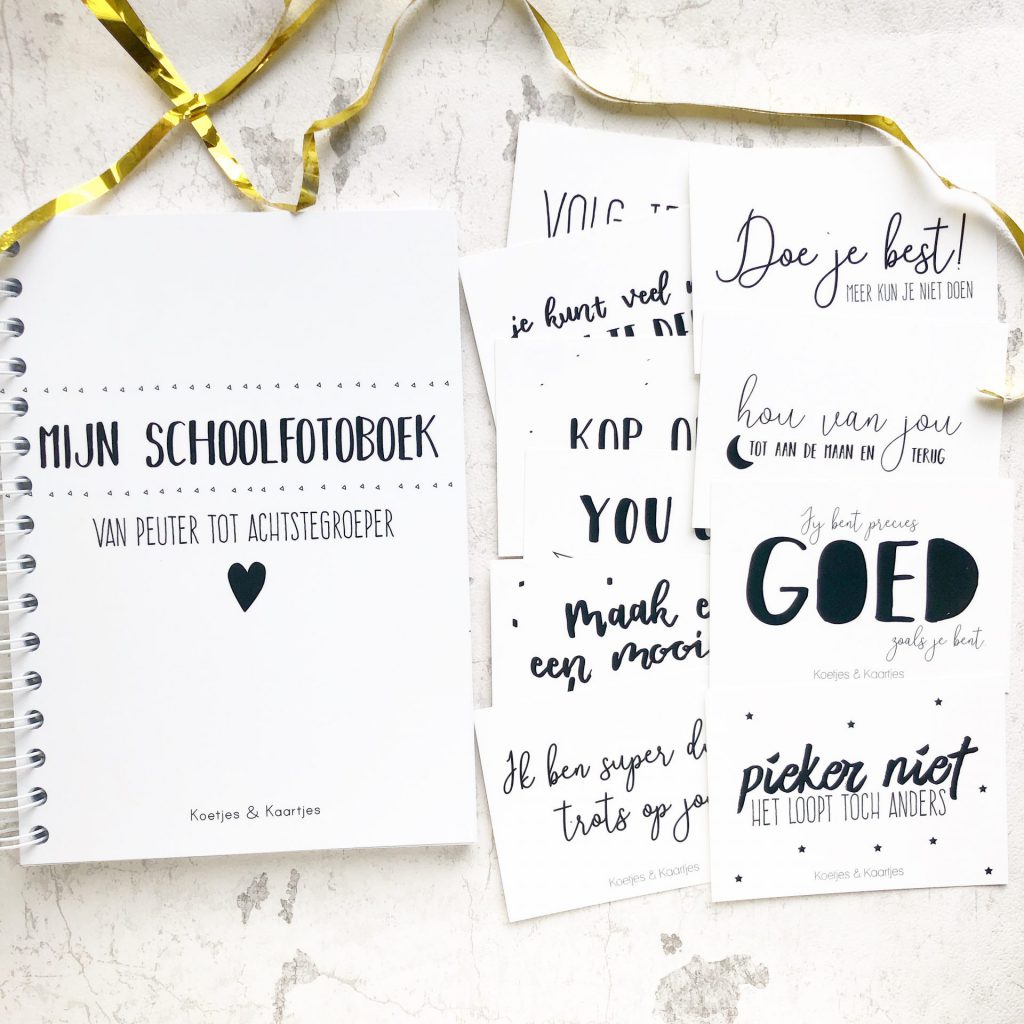 MIJN SCHOOLFOTOBOEK
VAN PEUTER TOT ACHTSTEGROEPER
Koetjes & Kaartjes
VOLG JE
je kunt veel
KOP
YOU
maak
een mooi
Ik ben super
trots op
Koetjes & Kaartjes
Doe je best!
MEER KUN JE NIET DOEN
hou van jou
TOT AAN DE MAAN EN TERUG
Jij bent precies
GOED
zoals je bent
Koetjes & Kaartjes
pieker niet
HET LOOPT TOCH ANDERS
Koetjes & Kaartjes